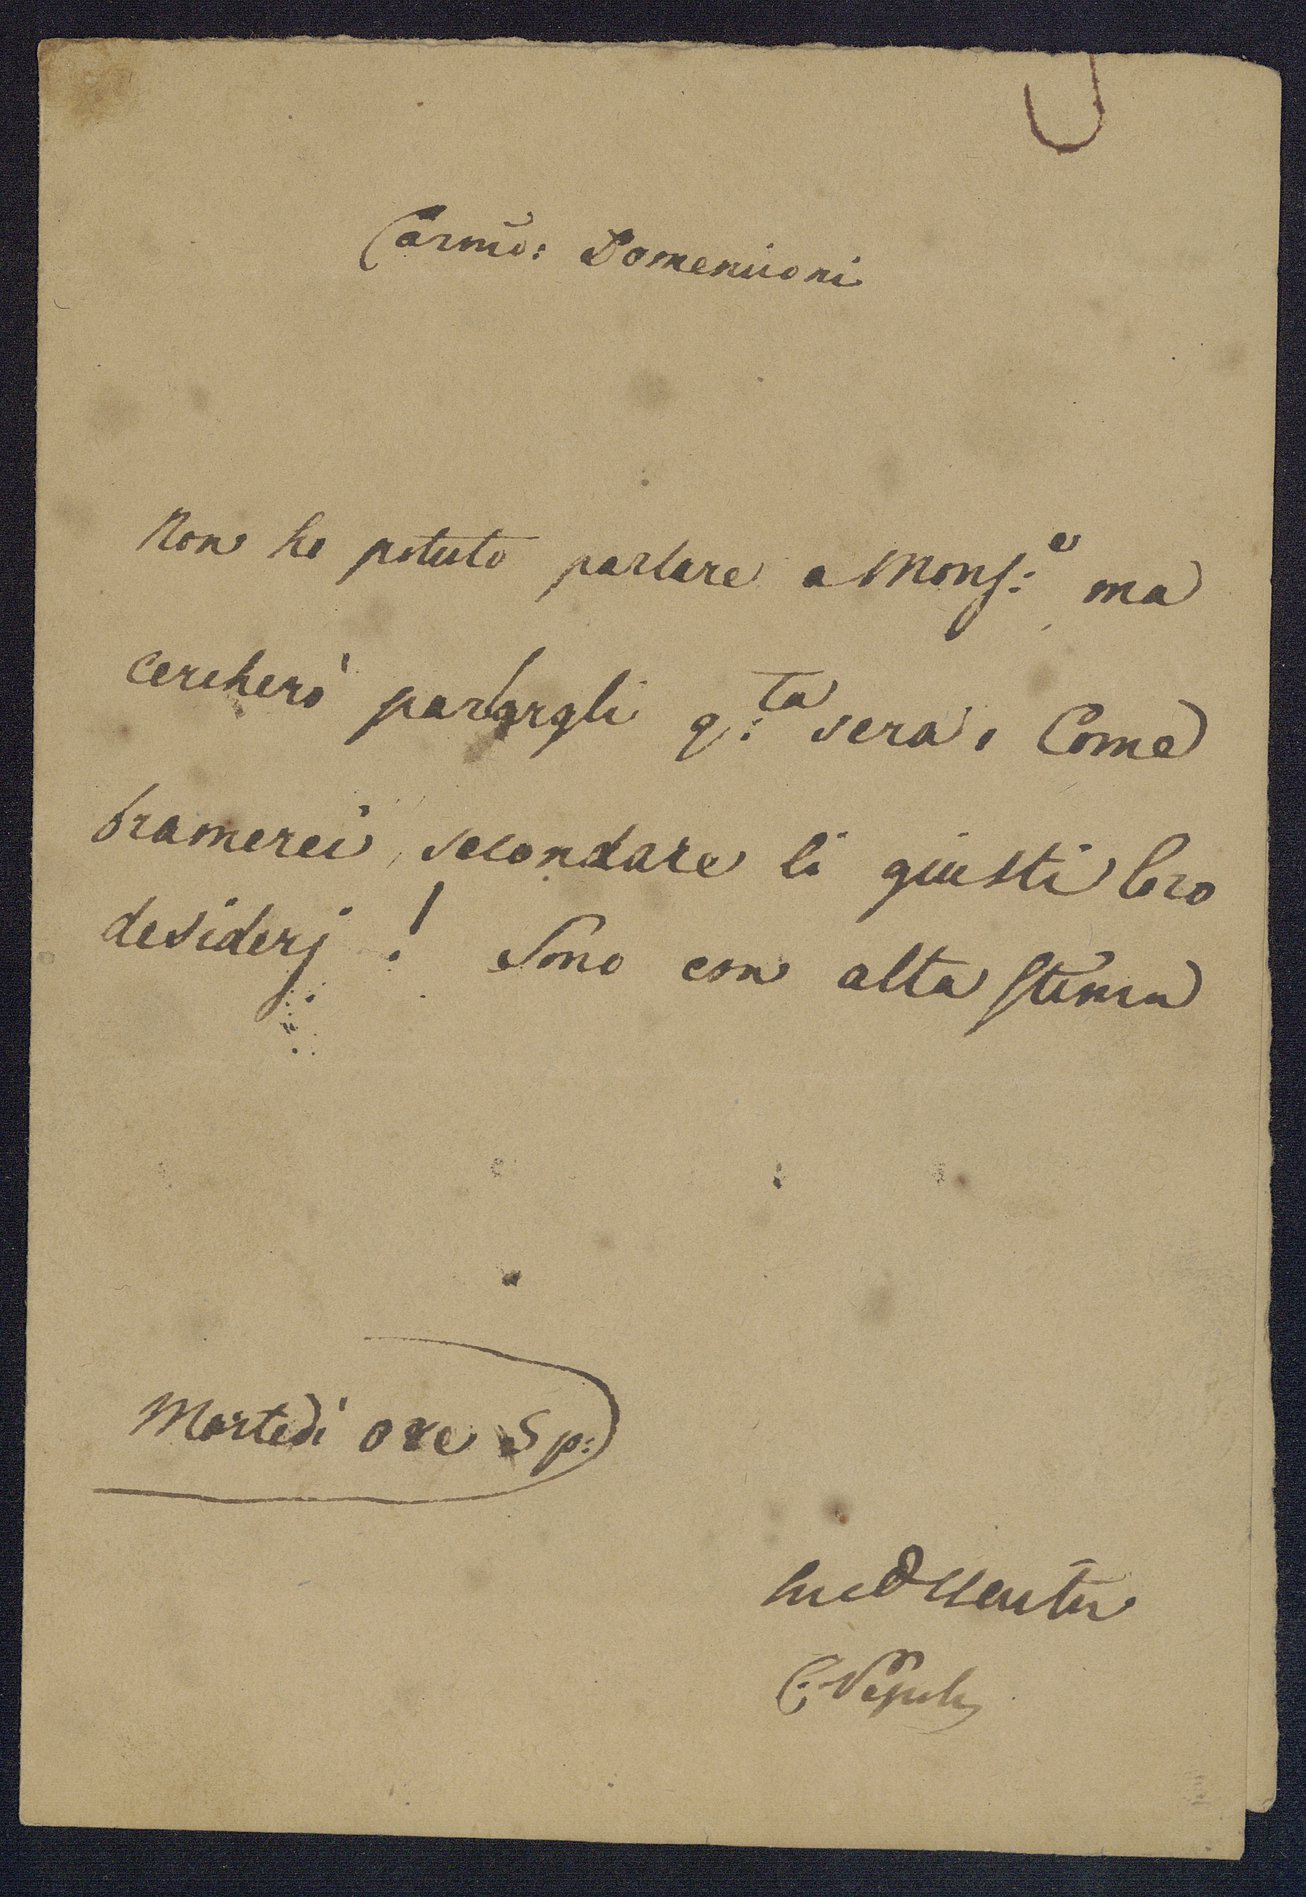 Carmo: Domeniconi
Non ho potuto parlare a Mons:e ma
cercherò parlargli q:ta sera. Come
bramerei secondare li giusti loro
desiderj! Sono con alta stima
Martedì ore 5 p: